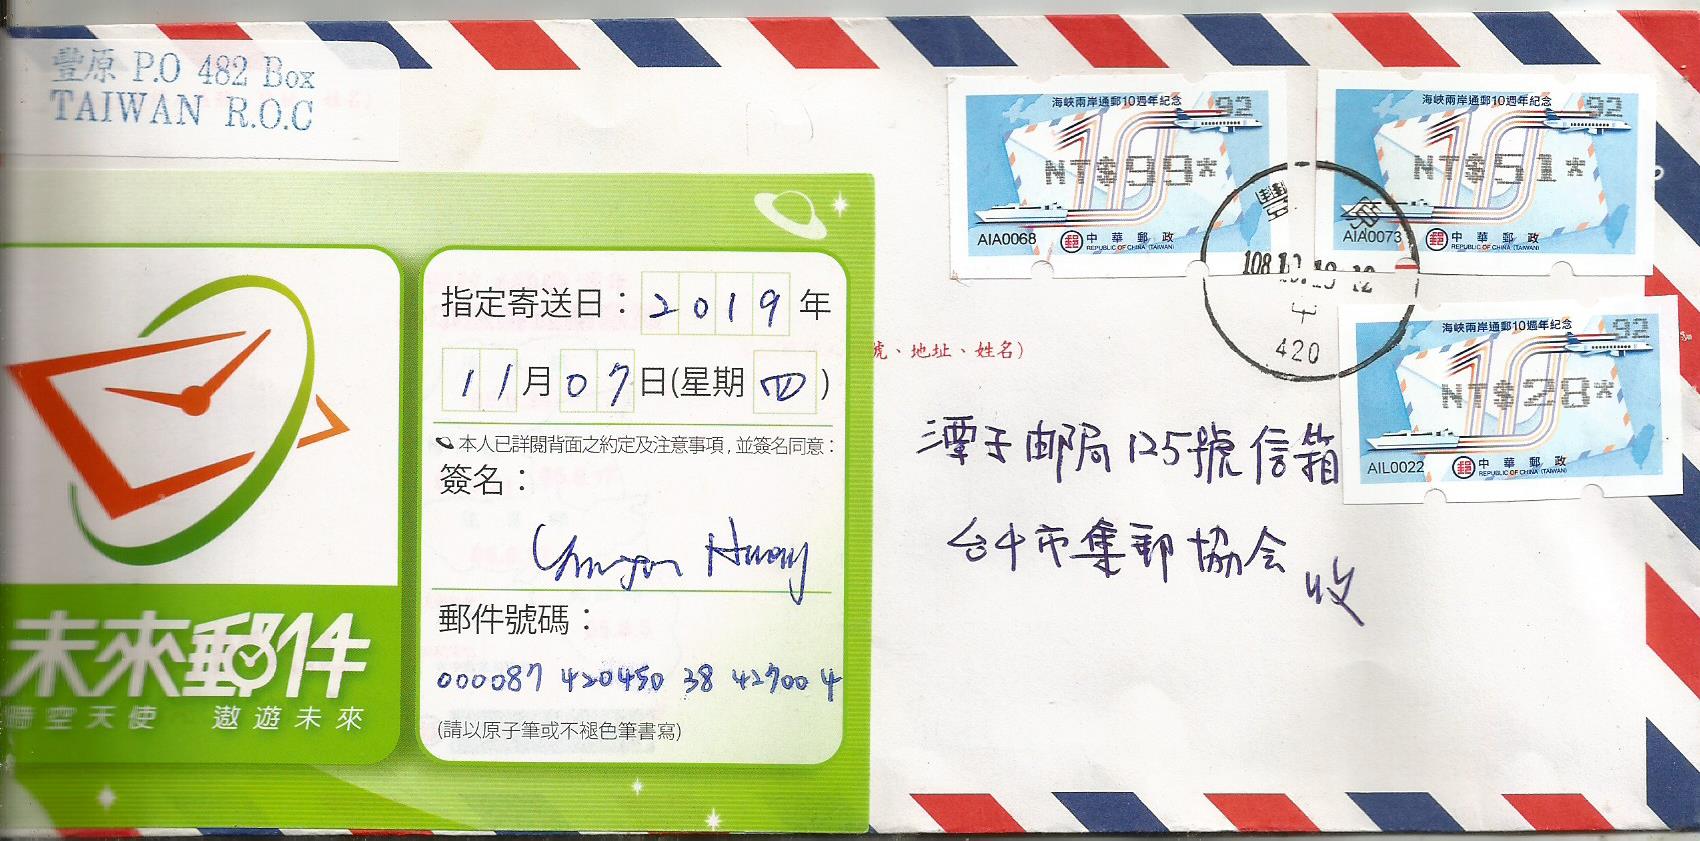 豐原 P.O 482 Box
TAIWAN R.O.C
指定寄送日：2019年
11月07日(星期四)
本人已詳閱背面之約定及注意事項，並簽名同意：
簽名：
Huang
郵件號碼：
000087 420450 38 427004
(請以原子筆或不褪色筆書寫)
未來郵件
時空天使 遨遊未來
海峽兩岸通郵10週年紀念 92
10
NT$99*
AIA0068 中華郵政
REPUBLIC OF CHINA (TAIWAN)
海峽兩岸通郵10週年紀念 92
10
NT$51*
AIA0073 中華郵政
REPUBLIC OF CHINA (TAIWAN)
豐原
420
海峽兩岸通郵10週年紀念 92
10
NT$28*
AIL0022 中華郵政
REPUBLIC OF CHINA (TAIWAN)
號、地址、姓名)
潭子郵局125號信箱
台中市集郵協会 收